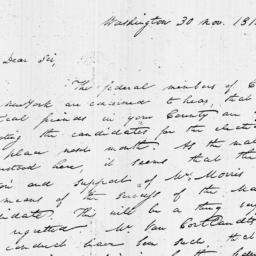 Washington 30 nov. 181
Dear Sir,
The federal members of C
New York are concerned to hear, that
ical friends in your County are
ting the candidates for the elect
place next month. As the mat
stood here, it seems that the
on and support of Mr. Morris
means of the success of the Ma
didate. This will be a thing
regretted. Mr. Van Cortlandt
conduct have been such, that